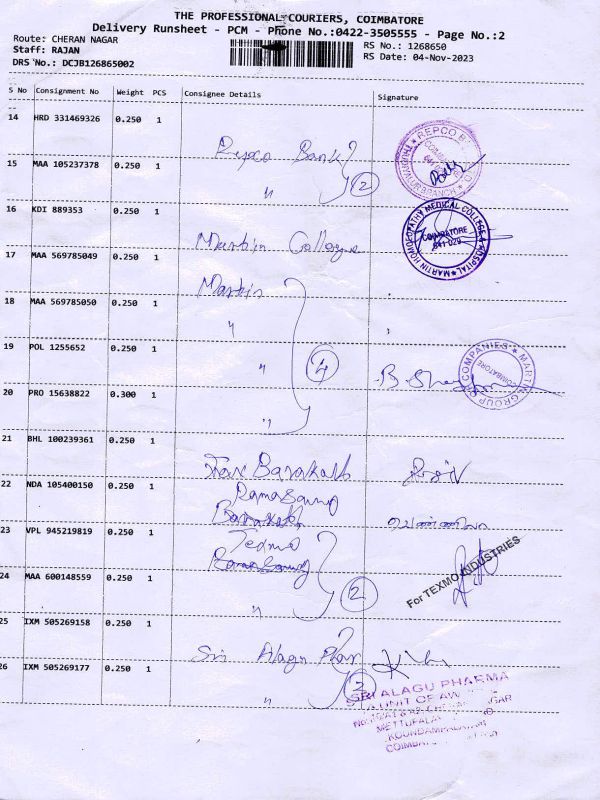 THE PROFESSIONAL COURIERS, COIMBATORE
Delivery Runsheet - PCM - Phone No.:0422-3505555 - Page No.:2
Route: CHERAN NAGAR
RS No.: 1268650
Staff: RAJAN
RS Date: 04-Nov-2023
DRS No.: DCJB126865002
S No Consignment No Weight PCS Consignee Details Signature
14 HRD 331469326 0.250 1
Repco Bank
REPCO B
15 MAA 105237378 0.250 1
" 2
16 KDI 889353 0.250 1
Martin College
MARTIN HOMOEOPATHY MEDICAL COLLEGE & HOSPITAL
COIMBATORE
641 029
17 MAA 569785049 0.250 1
Martin
18 MAA 569785050 0.250 1
"
19 POL 1255652 0.250 1
" 4
MARTIN GROUP OF COMPANIES
COIMBATORE
20 PRO 15638822 0.300 1
"
21 BHL 100239361 0.250 1
Barakath
22 NDA 105400150 0.250 1
Barakath
23 VPL 945219819 0.250 1
Texmo
For TEXMO INDUSTRIES
24 MAA 600148559 0.250 1
" 2
25 IXM 505269158 0.250 1
Sri Alagu Phar
26 IXM 505269177 0.250 1
" 2
SRI ALAGU PHARMA
A UNIT OF
METTUPALA
KOUNDAMPALAYAM
COIMBAT